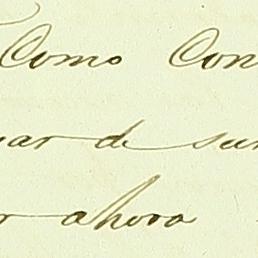 Como Con
ar de su
r ahora